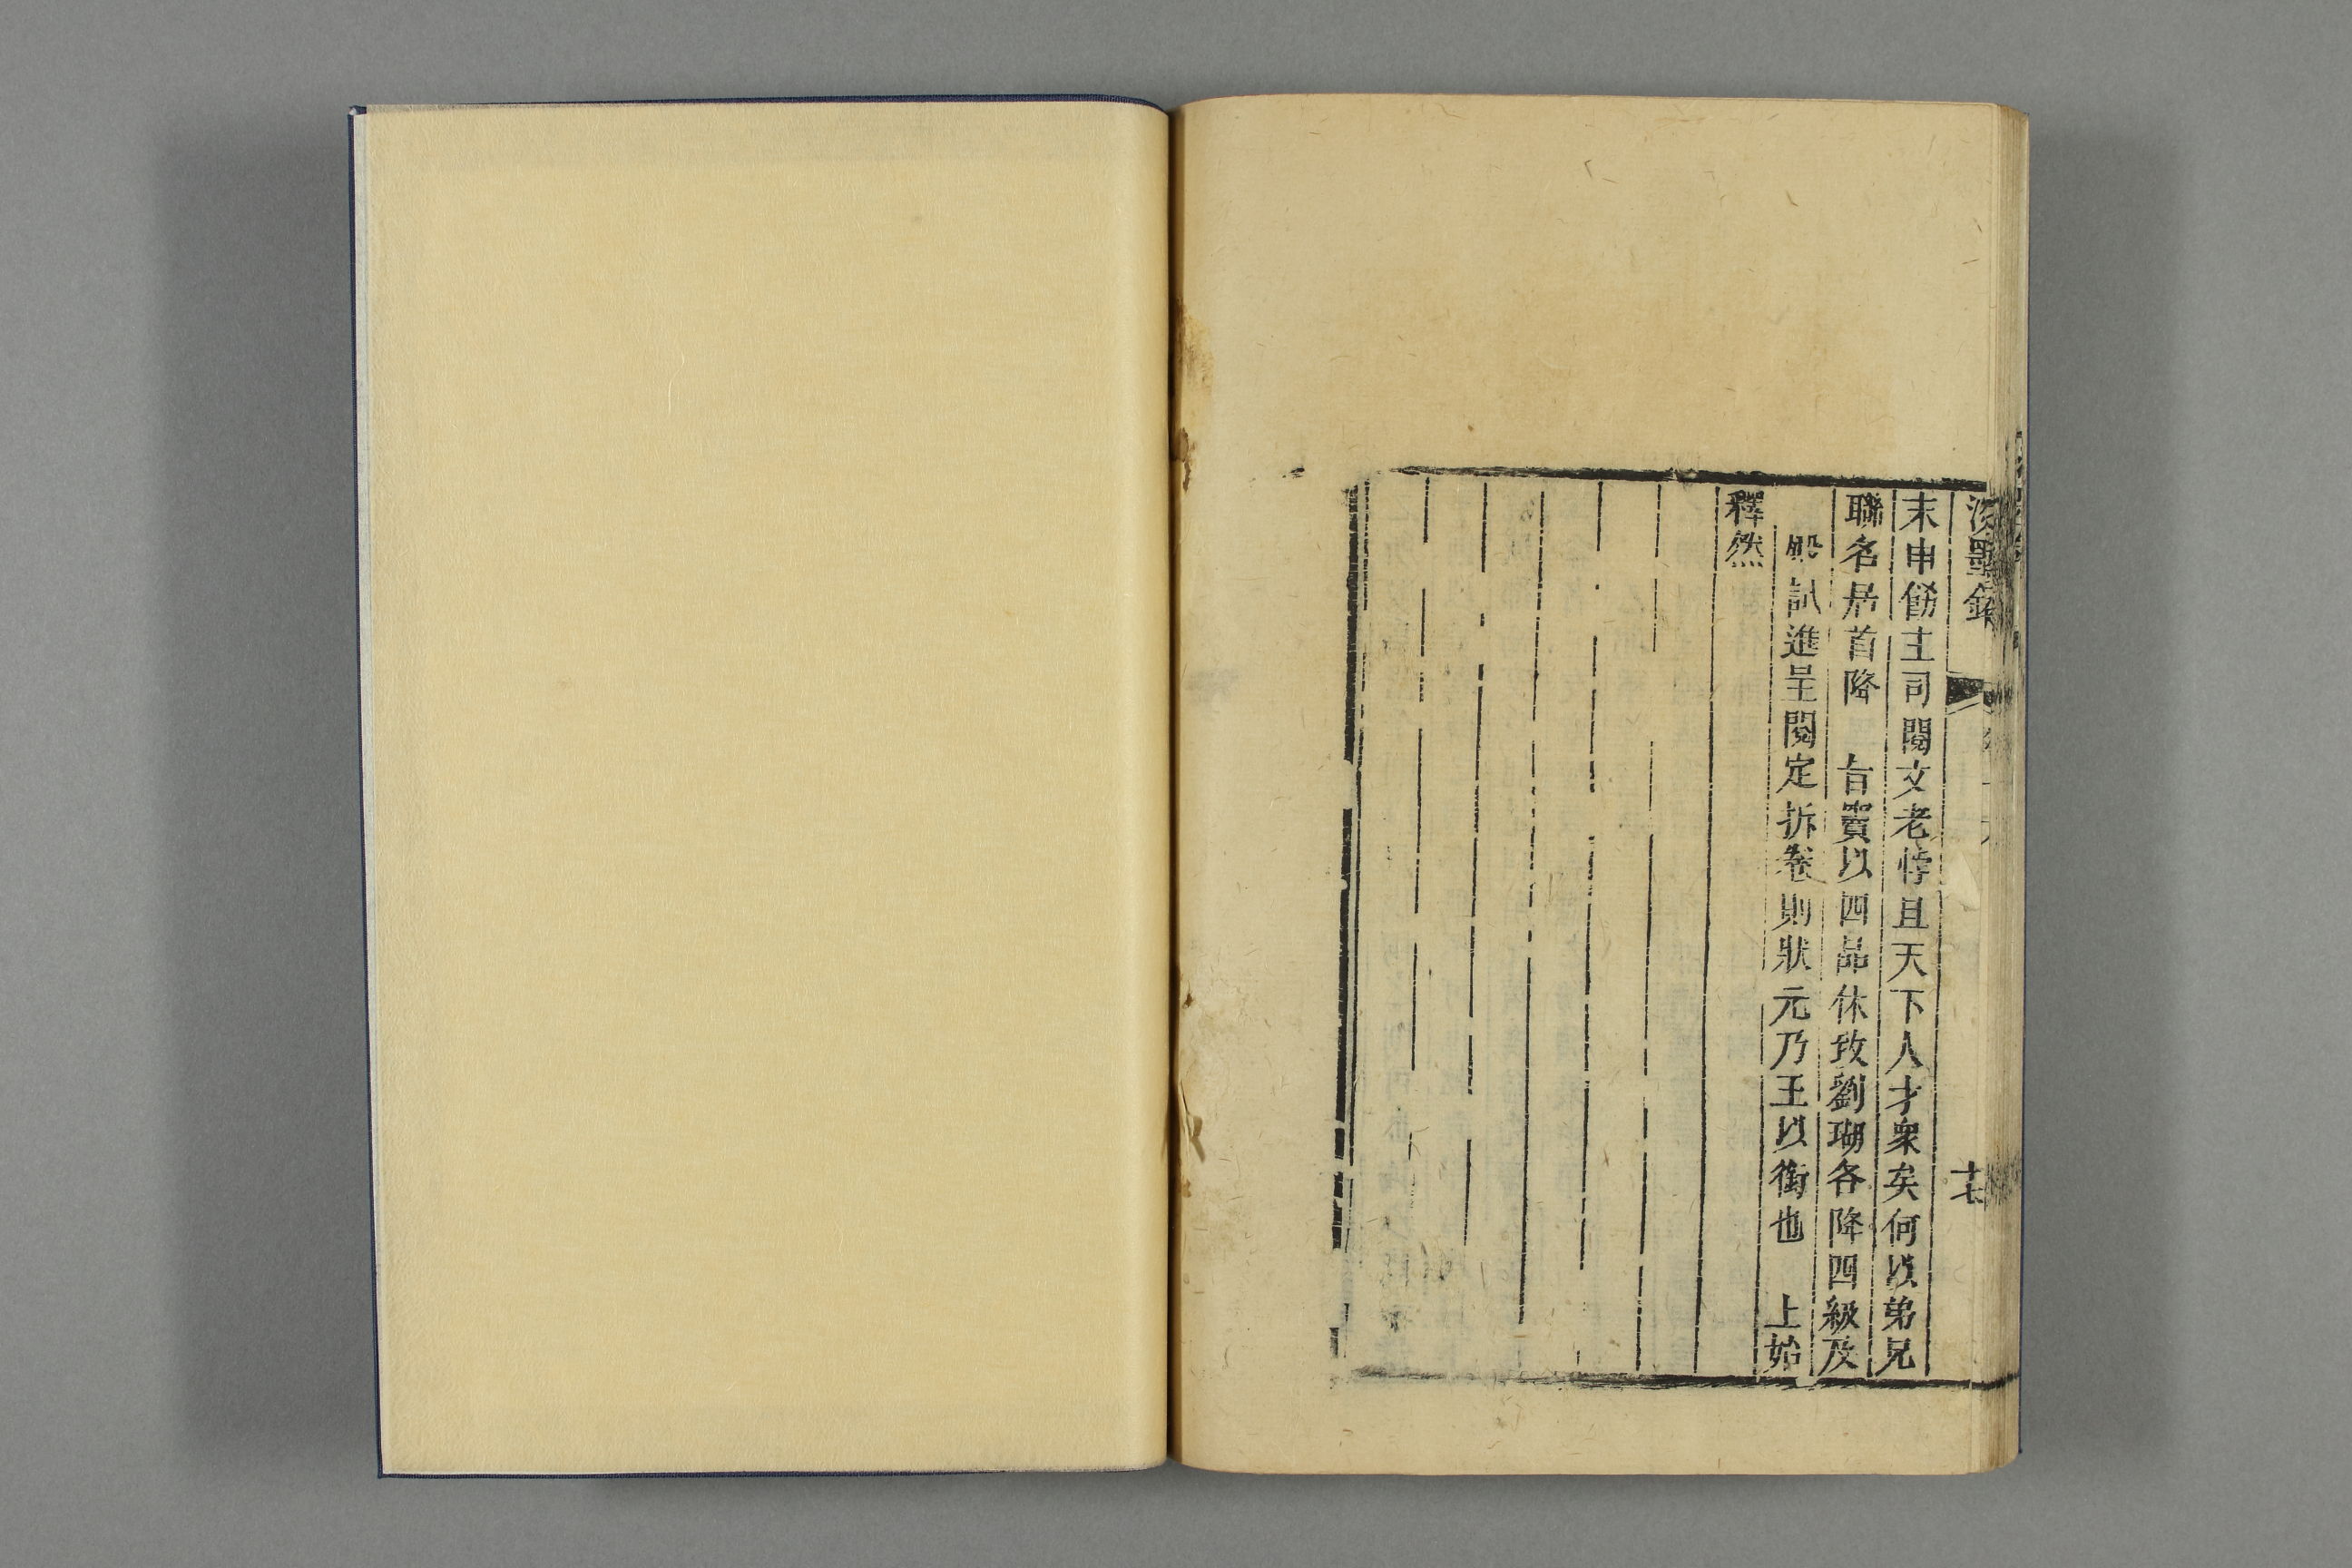 淡墨錄
十七
末申飭主司閱文老悖且天下人才衆矣何以弟兄
聯名居首降 旨竇以四品休致劉瑚各降四級及
殿試進呈閱定拆卷則狀元乃王以銜也 上始
釋然